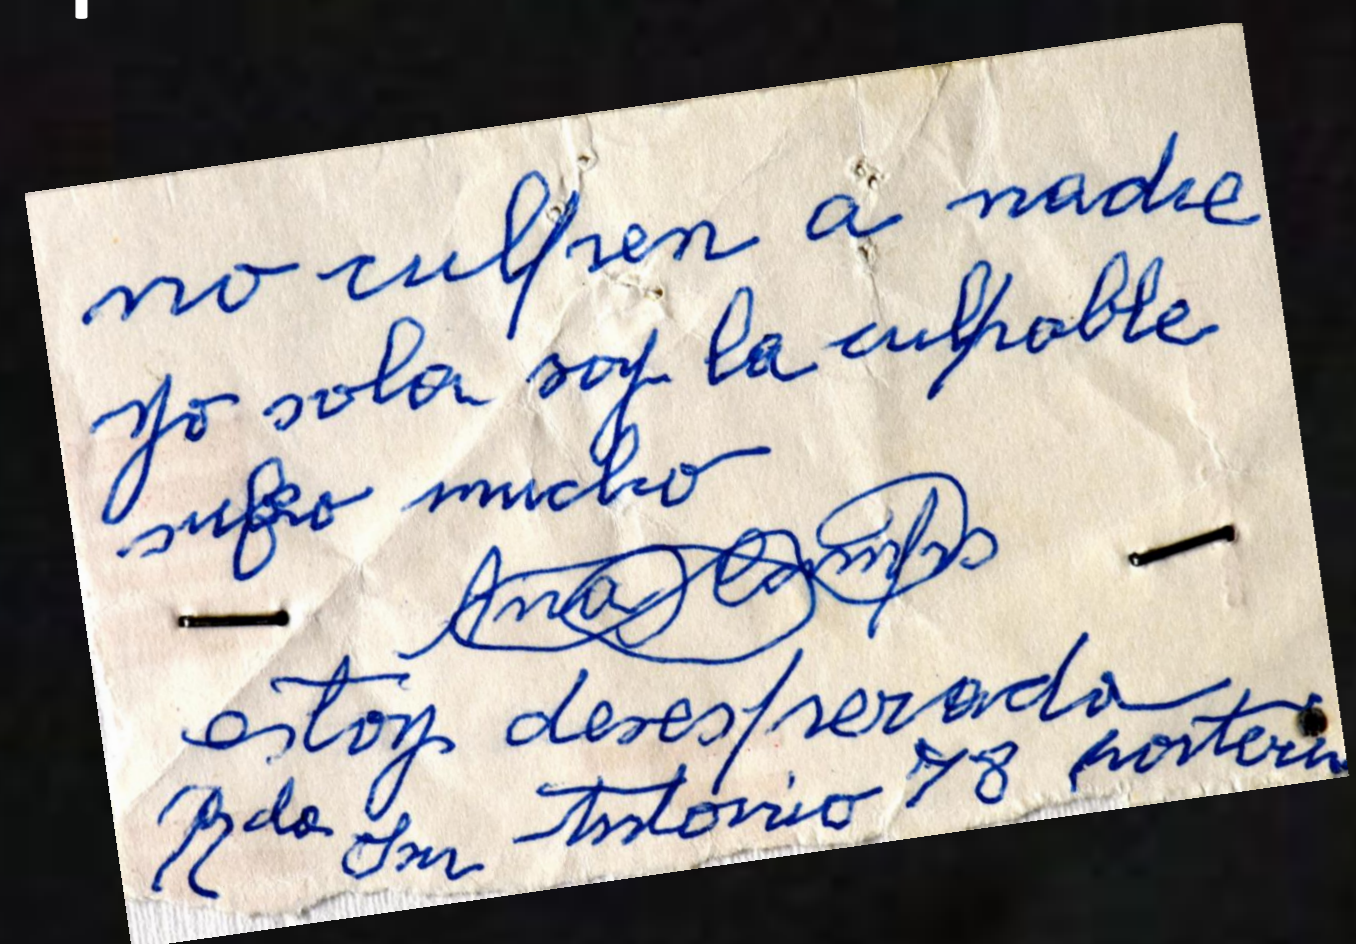 no culpen a nadie
yo sola soy la culpable
sufro mucho
Ana Camps
estoy desesperada
Rda San Antonio 78 porteria